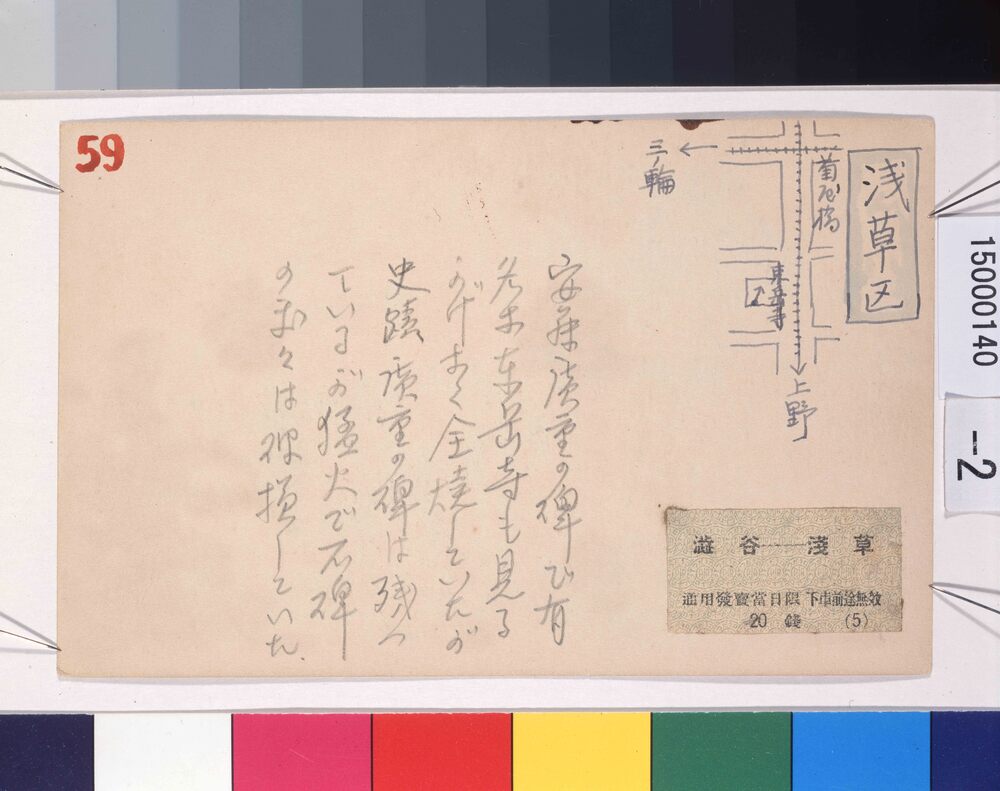 59
浅草区
菊屋橋
三ノ輪
東岳寺
上野
安藤廣重の碑で有
名な東岳寺も見る
かげなく全焼していたが
史蹟廣重の碑は残つ
ているが猛火で石碑
の所々は破損していた.
澁谷──淺草
通用發賣當日限 下車前途無效
20 錢 (5)
15000140
-2